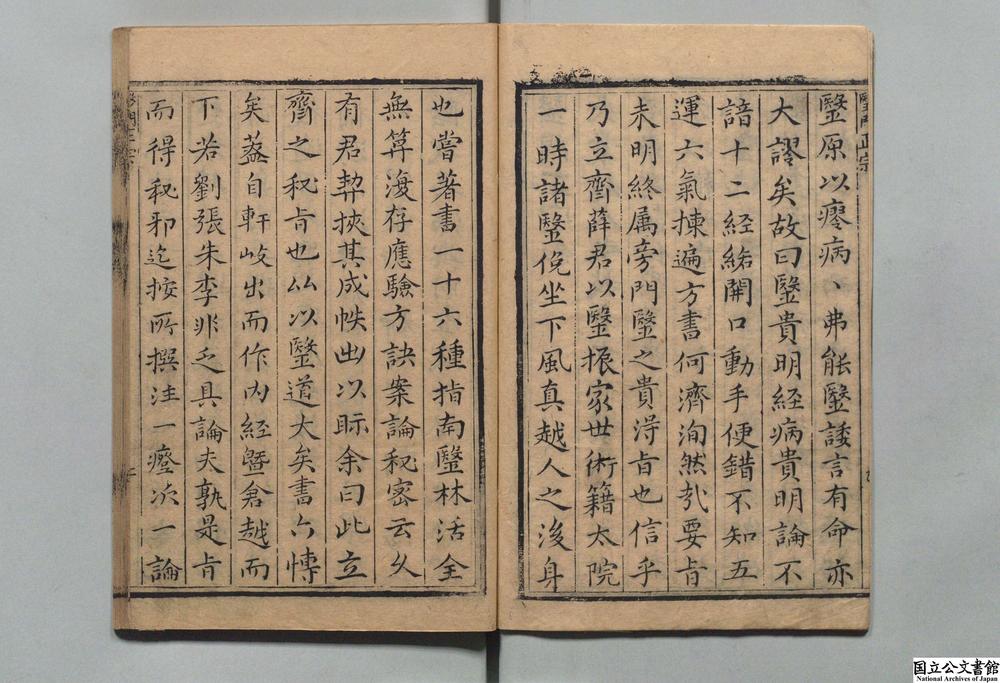 毉原以瘳病、弗能毉諉言有命亦
大謬矣故曰毉貴明經病貴明論不
諳十二経絡開口動手便錯不知五
運六氣揀遍方書何濟洵然㢤要旨
未明終属旁門毉之貴淂旨也信乎
乃立齊薛君以毉振家世術籍太院
一時諸毉俛坐下風真越人之後身
也嘗著書一十六種指南毉林活全
無筭復存應驗方訣案論秘密云乆
有君契挾其成帙出以眎余曰此立
齊之秘旨也以毉道大矣書亦慱
矣葢自軒岐出而作内經曁倉越而
下若劉張朱李非乏具論夫孰是旨
而得秘邪迄按所撰注一癥次一論
毉門正宗
国立公文書館
National Archives of Japan